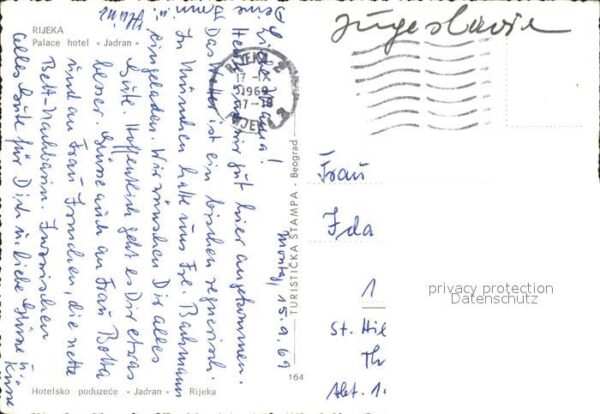 RIJEKA
Palace hotel «Jadran»
Jugoslavie
RIJEKA 2
17-IX
1969
17-18
RIJEKA 2
Montag, 15.9.69
Liebe Mama!
Heute sind wir gut hier angekommen.
Das Wetter ist ein bischen regnerisch.
In München hatte uns Fr. Bachmann
eingeladen. Wir wünschen Dir alles
Gute. Hoffentlich geht es Dir etwas
besser. Grüsse auch an Frau Botta
und an Frau die nette
Bett-Nachbarin. Inzwischen
alles Gute für Dich u. liebe Grüsse u.
Küsse
TURISTIČKA ŠTAMPA - Beograd
164
Hotelsko poduzeće «Jadran» Rijeka
Frau
Ida
1
St. Hil
Th
Abt. 1
privacy protection
Datenschutz